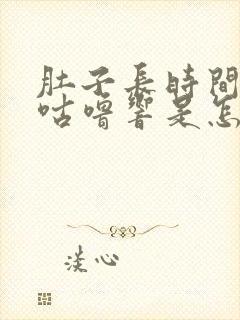 肚子長時間
咕嚕響是怎
淡心